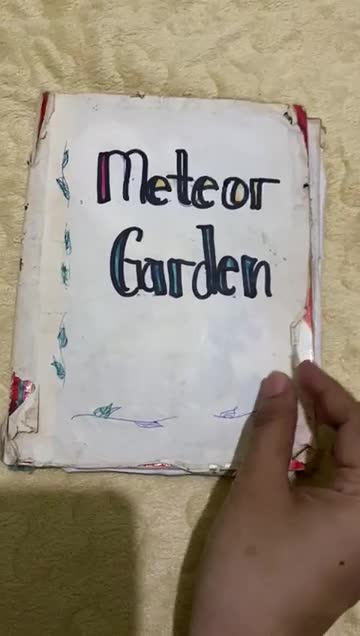 Meteor
Garden